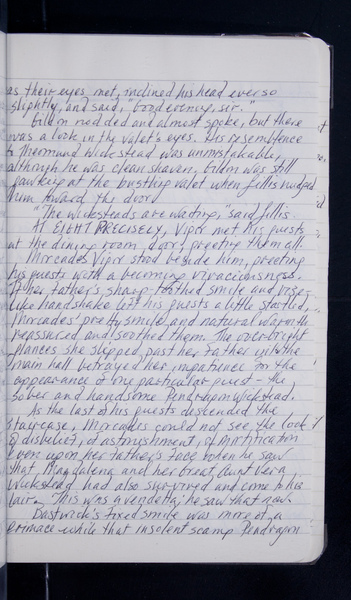 as their eyes met, inclined his head ever so
slightly, and said, "Good evening, sir."
Gildon nodded and almost spoke, but there
was a look in the valet's eyes. His resemblence
to Thormund Wickstead was unmistakable,
although he was clean shaven. Gildon was still
gawking at the bustling valet when Fillis nudged
him toward the door.
"The Wicksteads are waiting," said Fillis.
At EIGHT PRECISELY, Vigor met his guests
at the dining room door, greeting them all.
Mercades Vigor stood beside him, greeting
his guests with a becoming vivaciousness.
If her father's sharp-toothed smile and
like handshake left his guests a little startled,
Mercades' pretty smile and natural warmth
reassured and soothed them. The over-bright
glances she slipped past her father into the
main hall betrayed her impatience for the
appearance of one particular guest - the
sober and handsome Pendragon Wickstead.
As the last of his guests descended the
staircase, Mercades could not see the look
of disbelief, of astonishment, of mortification
even upon her father's face when he saw
that Magdalena and her great aunt Vera
Wickstead had also survived and come to his
lair. This was a vendetta, he saw that now.
Bastwick's fixed smile was more of a
grimace while that insolent scamp Pendragon